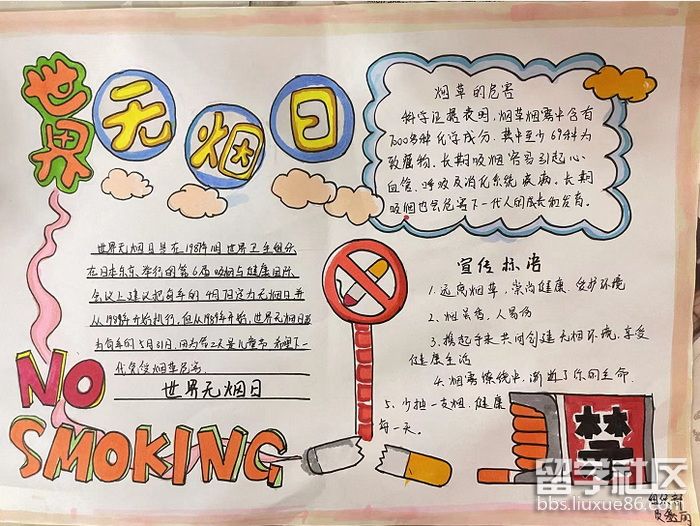 世界
无烟日
烟草的危害
科学证据表明，烟草烟雾中含有
7000多种化学成分，其中至少69种为
致癌物，长期吸烟容易引起心
血管、呼吸及消化系统疾病，长期
吸烟也会危害下一代人的成长和发育。
世界无烟日是在1987年11月世界卫生组织
在日本东京举行的第6届吸烟与健康国际
会议上建议把每年的4月7日定为无烟日并
从1988年开始执行，但从1989年开始，世界无烟日改
为每年的5月31日，因为第二天是儿童节，希望下一
代免受烟草危害
世界无烟日
宣传标语
1. 远离烟草，崇尚健康，爱护环境
2. 烟虽香，人易伤
3. 携起手来共同创建无烟环境，享受
健康生活
4. 烟雾缭绕中，渐逝了你的生命.
5. 少抽一支烟，健康
每一天。
禁
NO
SMOKING
留学社区
bbs.liuxue86.com